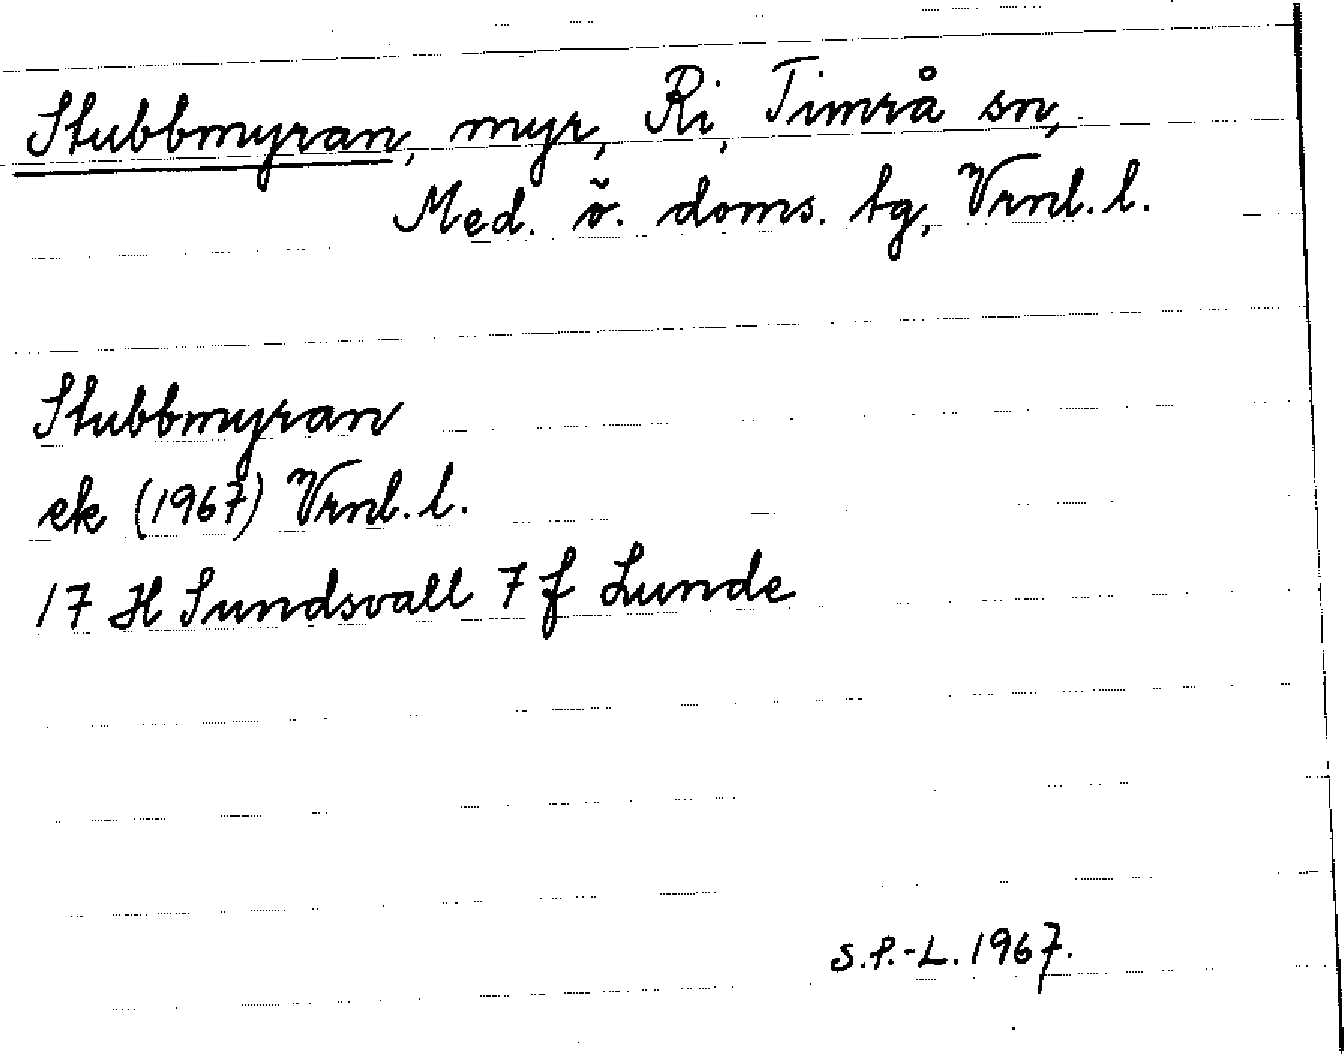 Stubbmyran, myr, Ri, Timrå sn,
Med. ö. doms. tg, Vrnl. l.
Stubbmyran
ek (1967) Vrnl. l.
17 H Sundsvall 7 f Lunde
S.P.-L. 1967.